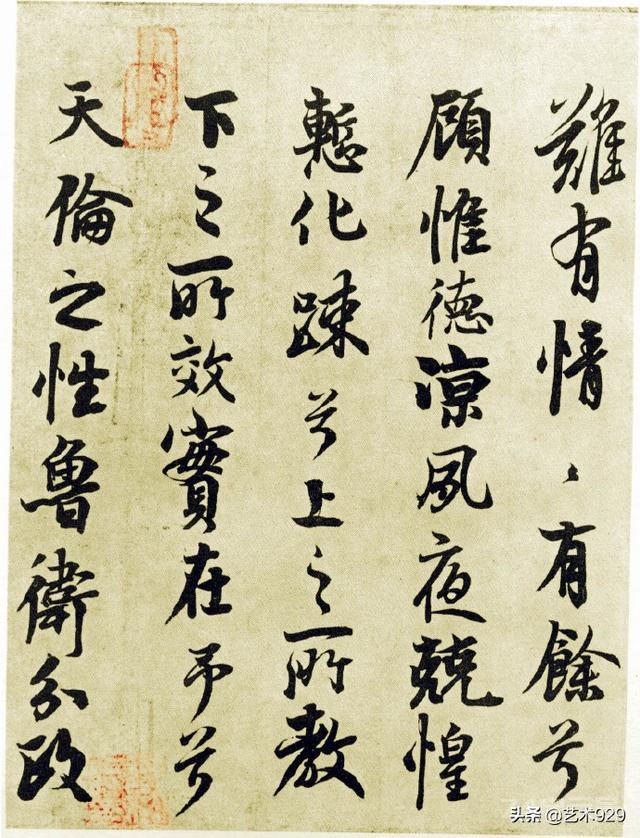 難有情〻有餘兮
顧惟德涼夙夜兢惶
慙化踈兮上之所教
下之所效實在予兮
天倫之性魯衛分政
头条 @艺术929